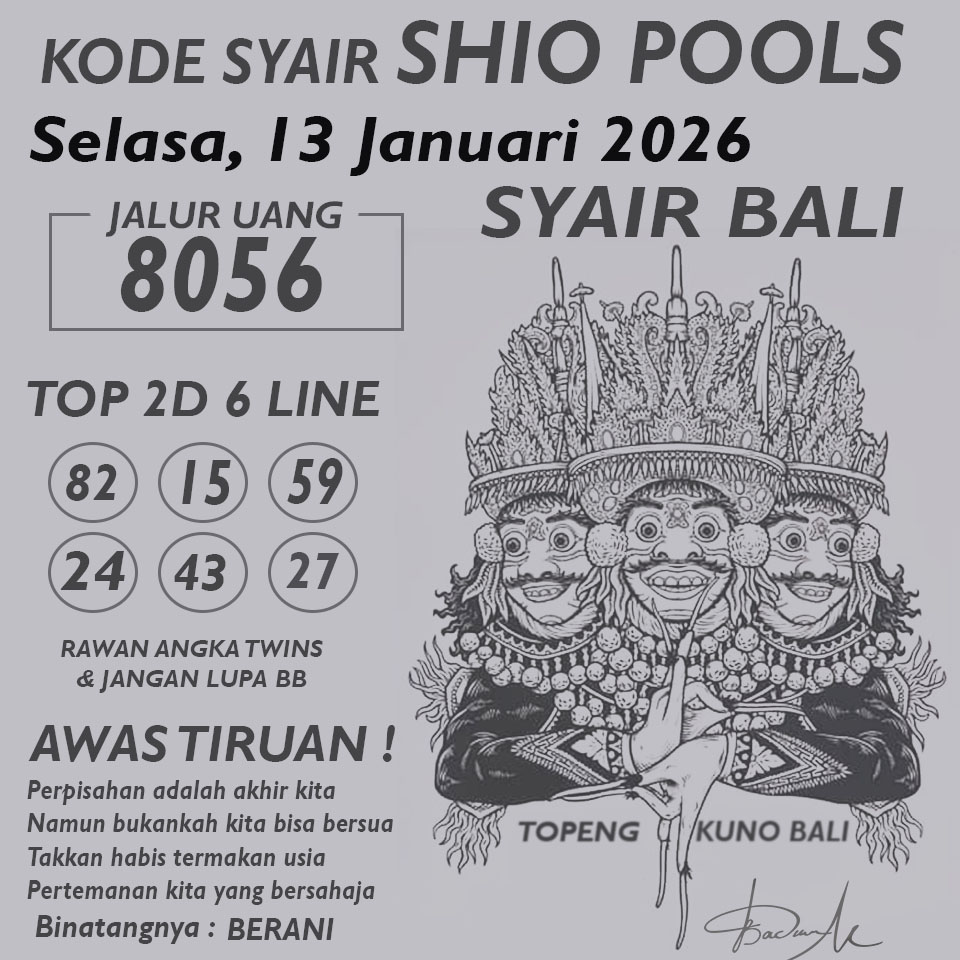 KODE SYAIR SHIO POOLS
Selasa, 13 Januari 2026
SYAIR BALI
JALUR UANG
8056
TOP 2D 6 LINE
82 15 59
24 43 27
RAWAN ANGKA TWINS
& JANGAN LUPA BB
AWAS TIRUAN !
Perpisahan adalah akhir kita
Namun bukankah kita bisa bersua
Takkan habis termakan usia
Pertemanan kita yang bersahaja
Binatangnya : BERANI
TOPENG KUNO BALI